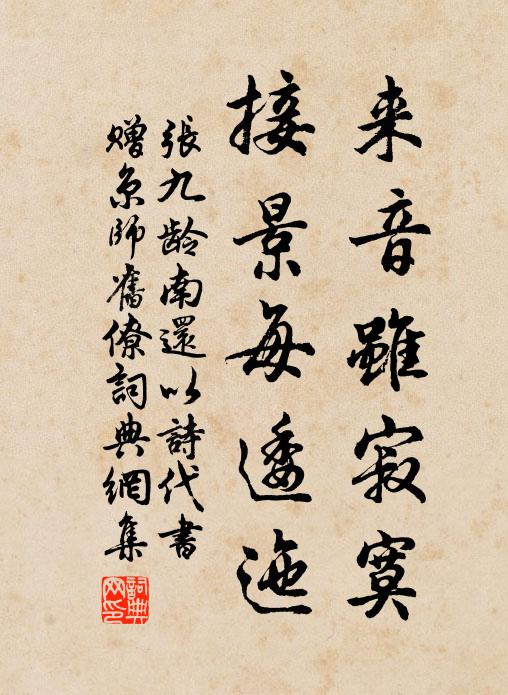 来音雖寂寞
接景每逶迤
張九齡南還以詩代書
贈京師舊僚詞典網集
詞典
网印